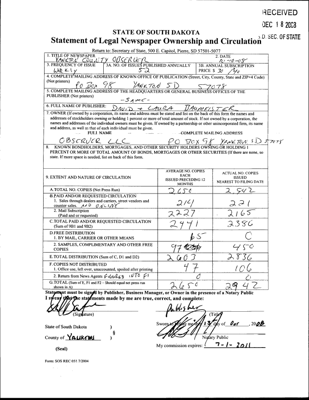 RECEIVED
DEC 18 2008
S.D. SEC. OF STATE
STATE OF SOUTH DAKOTA
Statement of Legal Newspaper Ownership and Circulation
Return to: Secretary of State, 500 E. Capitol, Pierre, SD 57501-5077
1. TITLE OF NEWSPAPER
YANKTON COUNTY OBSERVER
2. DATE
3. FREQUENCY OF ISSUE
WEEKLY
3A. NO. OF ISSUES PUBLISHED ANNUALLY
52
3B. ANNUAL SUBSCRIPTION
PRICE $
4. COMPLETE MAILING ADDRESS OF KNOWN OFFICE OF PUBLICATION (Street, City, County, State and ZIP+4 Code)
(Not printers)
PO BOX 98 YANKTON SD 57078
5. COMPLETE MAILING ADDRESS OF THE HEADQUARTERS OR GENERAL BUSINESS OFFICES OF THE
PUBLISHER (Not printers)
-SAME-
6. FULL NAME OF PUBLISHER:
DAVID + LAURA
7. OWNER (If owned by corporation, its name and address must be stated and on the back of this form the names and
addresses of stockholders owning or holding 1 percent or more of total amount of stock. If not owned by a corporation, the
names and addresses of the individual owners must be given. If owned by a partnership or other unincorporated firm, its name
and address, as well as that of each individual must be given.
FULL NAME
COMPLETE MAILING ADDRESS
OBSERVER LLC
PO BOX 98 YANKTON SD 57078
8. KNOWN BONDHOLDERS, MORTGAGES, AND OTHER SECURITY HOLDERS OWNING OR HOLDING 1
PERCENT OR MORE OF TOTAL AMOUNT OF BONDS, MORTGAGES OR OTHER SECURITIES (If there are none, so
state. If more space is needed, list on back of this form.
9. EXTENT AND NATURE OF CIRCULATION
AVERAGE NO. COPIES
EACH
ISSUED PRECEDING 12
MONTHS
ACTUAL NO. COPIES
ISSUED
NEAREST TO FILING DATE
A. TOTAL NO. COPIES (Net Press Run)
B. PAID AND/OR REQUESTED CIRCULATION
1. Sales through dealers and carriers, street vendors and
counter sales
214
221
2. Mail Subscription
(Paid and or requested)
2227
2165
C. TOTAL PAID AND/OR REQUESTED CIRCULATION
(Sum of 9B1 and 9B2)
2441
2386
D. FREE DISTRIBUTION
1. BY MAIL, CARRIER OR OTHER MEANS
2. SAMPLES, COMPLIMENTARY AND OTHER FREE
COPIES
450
E. TOTAL DISTRIBUTION (Sum of C, D1 and D2)
2603
2836
F. COPIES NOT DISTRIBUTED
1. Office use, left over, unaccounted, spoiled after printing
47
106
2. Return from News Agents
0
0
2650
2942
Statement must be signed by Publisher, Business Manager, or Owner in the presence of a Notary Public
I swear that the statements made by me are true, correct, and complete:
Publisher
(Signature)
(Title)
State of South Dakota )
County of YANKTON )
(Seal)
Notary Public
My commission expires: 7-1-2011
Form: SOS REC 051 7/2004